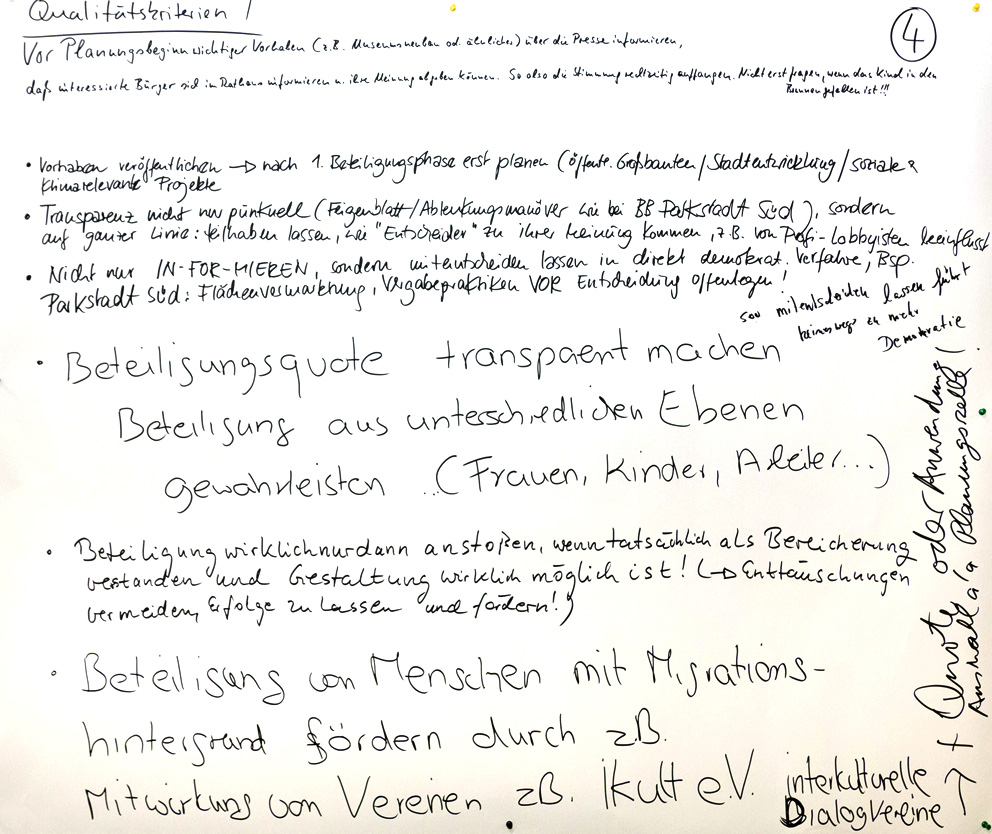 Qualitätskriterien /
4
Vor Planungsbeginn wichtiger Vorhaben (z.B. Museumsneubau od. ähnliches) über die Presse informieren,
daß interessierte Bürger sich im Rathaus informieren u. ihre Meinung abgeben können. So also die Stimmung rechtzeitig auffangen. Nicht erst fragen, wenn das Kind in den
Brunnen gefallen ist!!!
• Vorhaben veröffentlichen → nach 1. Beteiligungsphase erst planen (öffentl. Großbauten / Stadtentwicklung / soziale &
klimarelevante Projekte
• Transparenz nicht nur pünktuell (Feigenblatt / Ablenkungsmanöver wie bei BB Parkstadt Süd), sondern
auf ganzer Linie: teilhaben lassen, wie "Entscheider" zu ihrer Meinung kommen, z.B. von Profi-Lobbyisten beeinflusst
• Nicht nur IN-FOR-MIEREN, sondern mitentscheiden lassen in direkt demokrat. Verfahre, Bsp.
Parkstadt Süd: Flächenvermarktung, Vergabepraktiken VOR Entscheidung offenlegen!
mitentscheiden lassen führt
keineswegs zu mehr
Demokratie
• Beteiligungsquote transpaent machen
Beteiligung aus unterschiedlichen Ebenen
gewährleisten ..(Frauen, Kinder, Arbeiter...)
• Beteiligung wirklich nur dann anstoßen, wenn tatsächlich als Bereicherung
verstanden und Gestaltung wirklich möglich ist! (→ Enttäuschungen
vermeiden, Erfolge zu lassen und fördern!)
• Beteiligung von Menschen mit Migrations-
hintergrund fördern durch z.B.
Mitwirkung von Vereinen zB. Ikult e.V. interkulturelle
Dialogvereine
→ + Quote oder Anwendung
Auswahl a/a Planungszelle!